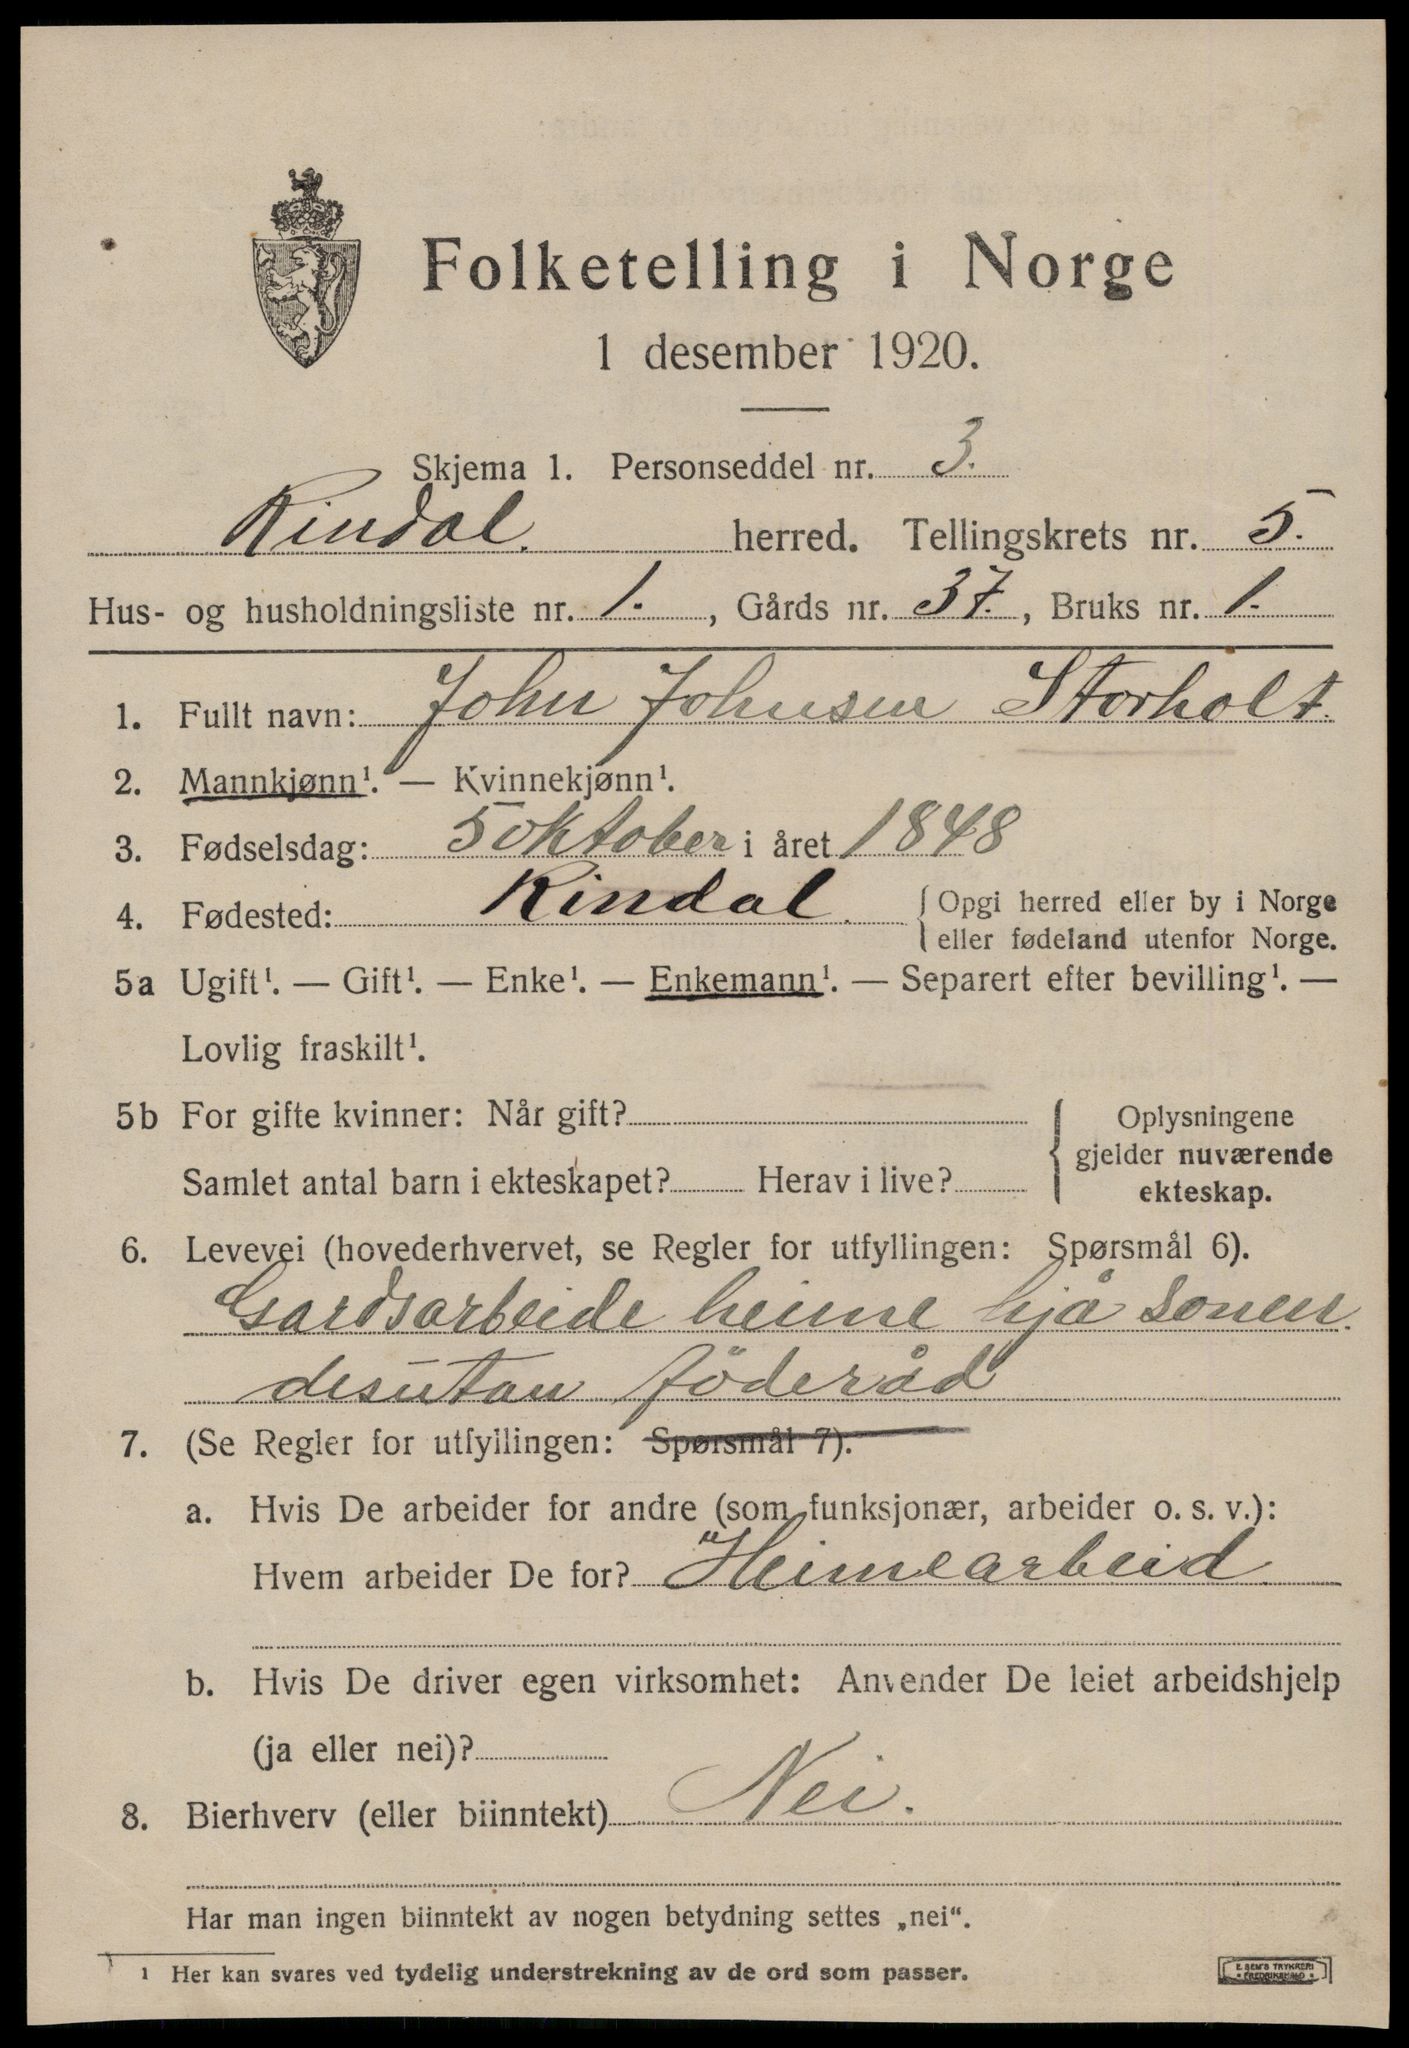 Folketelling i Norge
1 desember 1920.
Skjema 1. Personseddel nr. 3.
Rindal. herred. Tellingskrets nr. 5.
Hus- og husholdningsliste nr. 1. , Gårds nr. 37. , Bruks nr. 1.
1. Fullt navn: John Johnsen Storholt.
2. Mannkjønn¹. — Kvinnekjønn¹.
3. Fødselsdag: 5 oktober i året 1848
4. Fødested: Rindal. { Opgi herred eller by i Norge
eller fødeland utenfor Norge.
5a Ugift¹. — Gift¹. — Enke¹. — Enkemann¹. — Separert efter bevilling¹. —
Lovlig fraskilt¹.
5b For gifte kvinner: Når gift? { Oplysningene
gjelder nuværende
Samlet antal barn i ekteskapet? Herav i live? ekteskap.
6. Levevei (hovederhvervet, se Regler for utfyllingen: Spørsmål 6).
Gardsarbeide heime hjå sonen.
desutan föderåd
7. (Se Regler for utfyllingen: Spørsmål 7).
a. Hvis De arbeider for andre (som funksjonær, arbeider o. s. v.):
Hvem arbeider De for? Heimearbeid
b. Hvis De driver egen virksomhet: Anvender De leiet arbeidshjelp
(ja eller nei)?
8. Bierhverv (eller biinntekt) Nei.
Har man ingen biinntekt av nogen betydning settes „nei“.
¹ Her kan svares ved tydelig understrekning av de ord som passer.
E. SEM'S TRYKKERI
FREDRIKSHALD